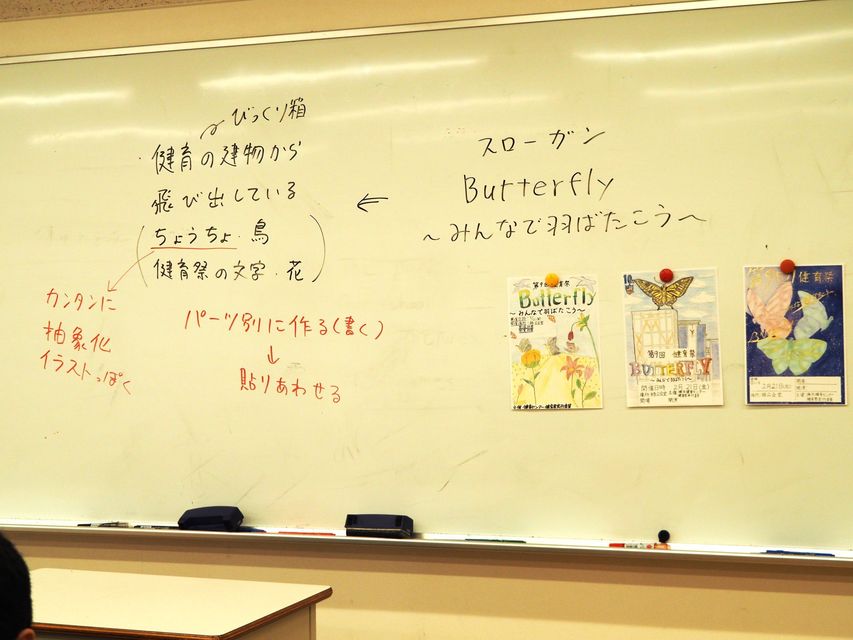 びっくり箱
・健育の建物から
飛び出している
(ちょうちょ・鳥
健育祭の文字・花)
カンタンに
抽象化
イラストっぽく
パーツ別に作る(書く)
↓
貼りあわせる
←
スローガン
Butterfly
～みんなで羽ばたこう～
第9回 健育祭
Butterfly
～みんなで羽ばたこう～
第9回 健育祭
BUTTERFLY
～みんなで羽ばたこう～
開催日時 2月21日(金)
健育祭
2月21日(金)